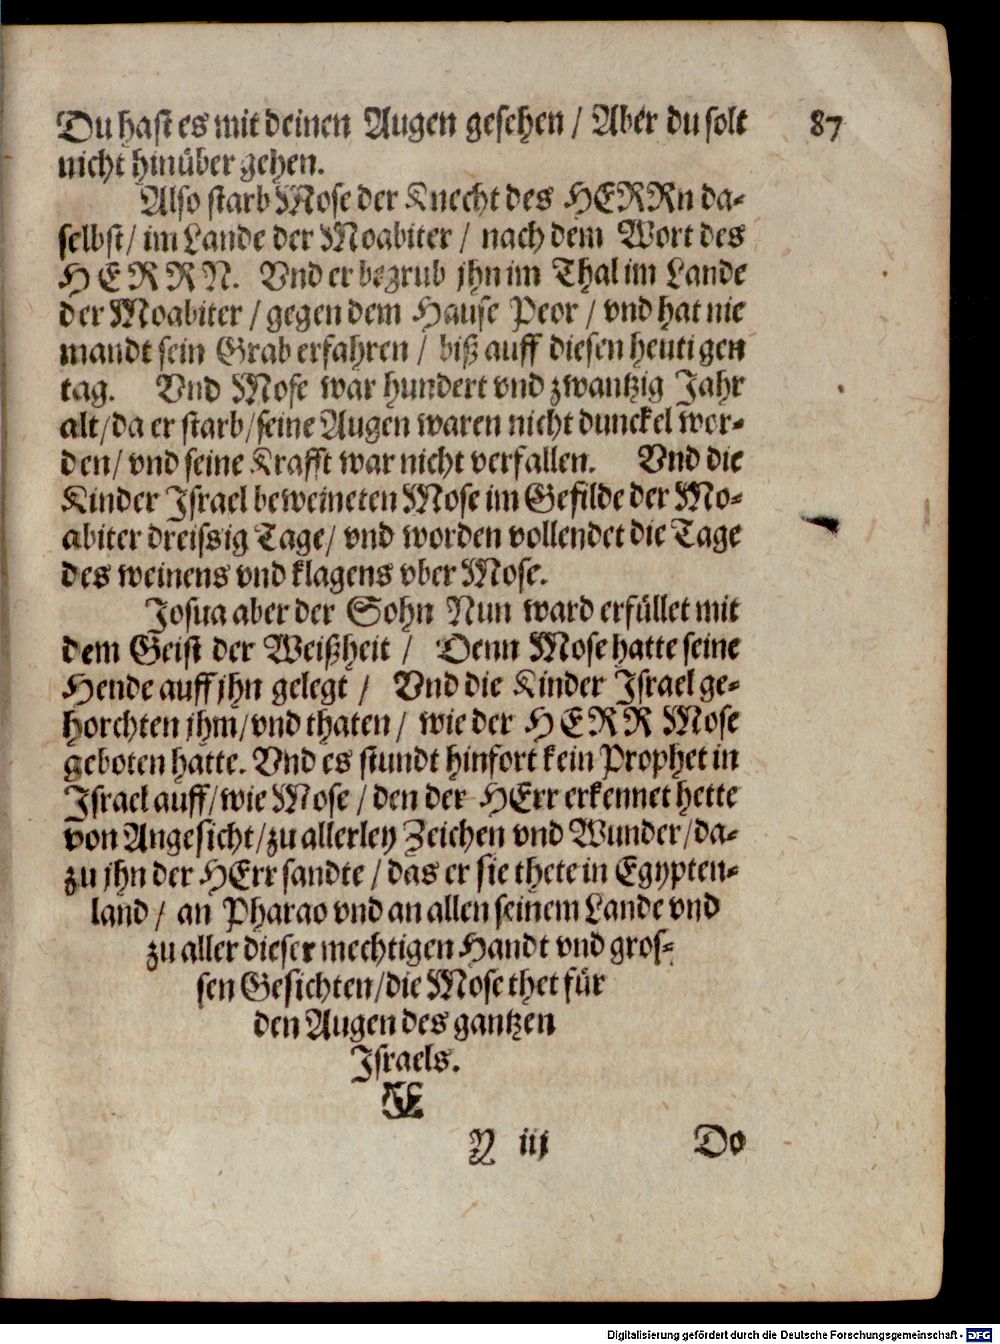 Du hast es mit deinen Augen gesehen / Aber du solt
87
nicht hinüber gehen.
Also starb Mose der Knecht des HERRn da-
selbst / im Lande der Moabiter / nach dem Wort des
HERRN. Vnd er begrub jhn im Thal im Lande
der Moabiter / gegen dem Hause Peor / vnd hat nie
mandt sein Grab erfahren / biß auff diesen heutigen
tag. Vnd Mose war hundert vnd zwantzig Jahr
alt / da er starb / seine Augen waren nicht dunckel wor-
den / vnd seine Krafft war nicht verfallen. Vnd die
Kinder Jsrael beweineten Mose im Gefilde der Mo-
abiter dreissig Tage / vnd worden vollendet die Tage
des weinens vnd klagens vber Mose.
Josua aber der Sohn Nun ward erfüllet mit
dem Geist der Weißheit / Denn Mose hatte seine
Hende auff jhn gelegt / Vnd die Kinder Jsrael ge-
horchten jhm / vnd thaten / wie der HERR Mose
geboten hatte. Vnd es stundt hinfort kein Prophet in
Jsrael auff / wie Mose / den der HErr erkennet hette
von Angesicht / zu allerley Zeichen vnd Wunder / da-
zu jhn der HErr sandte / das er sie thete in Egypten-
land / an Pharao vnd an allen seinem Lande vnd
zu aller dieser mechtigen Handt vnd gros-
sen Gesichten / die Mose thet für
den Augen des gantzen
Jsraels.
Y iij
Do
Digitalisierung gefördert durch die Deutsche Forschungsgemeinschaft - DFG